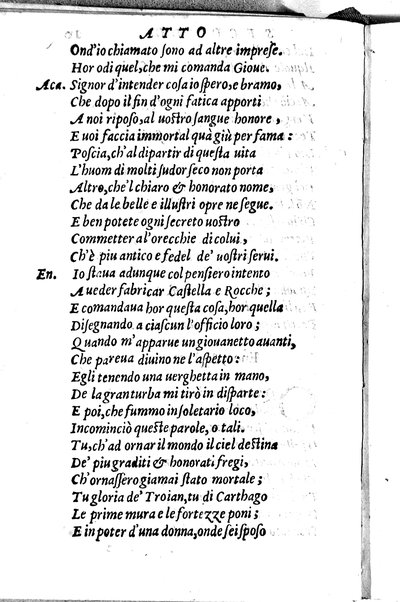 ATTO
Ond'io chiamato sono ad altre imprese.
Hor odi quel, che mi comanda Gioue.
Aca. Signor d'intender cosa io spero, e bramo,
Che dopo il fin d'ogni fatica apporti
A noi riposo, al uostro sangue honore,
E uoi faccia immortal quà giù per fama:
Poscia, ch'al dipartir di questa uita
L'huom di molti sudor seco non porta
Altro, che'l chiaro & honorato nome,
Che da le belle e illustri opre ne segue.
E ben potete ogni secreto uostro
Commetter a l'orecchie di colui,
Ch'è piu antico e fedel de' uostri serui.
En. Io staua adunque col pensiero intento
A ueder fabricar Castella e Rocche;
E comandaua hor questa cosa, hor quella
Disegnando a ciascun l'officio loro;
Quando m'apparue un giouanetto auanti,
Che pareua diuino ne l'aspetto:
Egli tenendo una uerghetta in mano,
De la gran turba mi tirò in disparte:
E poi, che fummo in soletario loco,
Incominciò queste parole, o tali.
Tu, ch'ad ornar il mondo il ciel destina
De' piu graditi & honorati fregi,
Ch'ornassero giamai stato mortale;
Tu gloria de' Troian, tu di Carthago
Le prime mura e le fortezze poni;
E in poter d'una donna, onde sei sposo